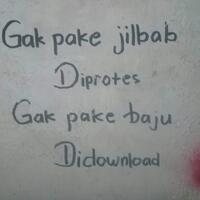 Gak pake jilbab
Diprotes
Gak pake baju
Didownload